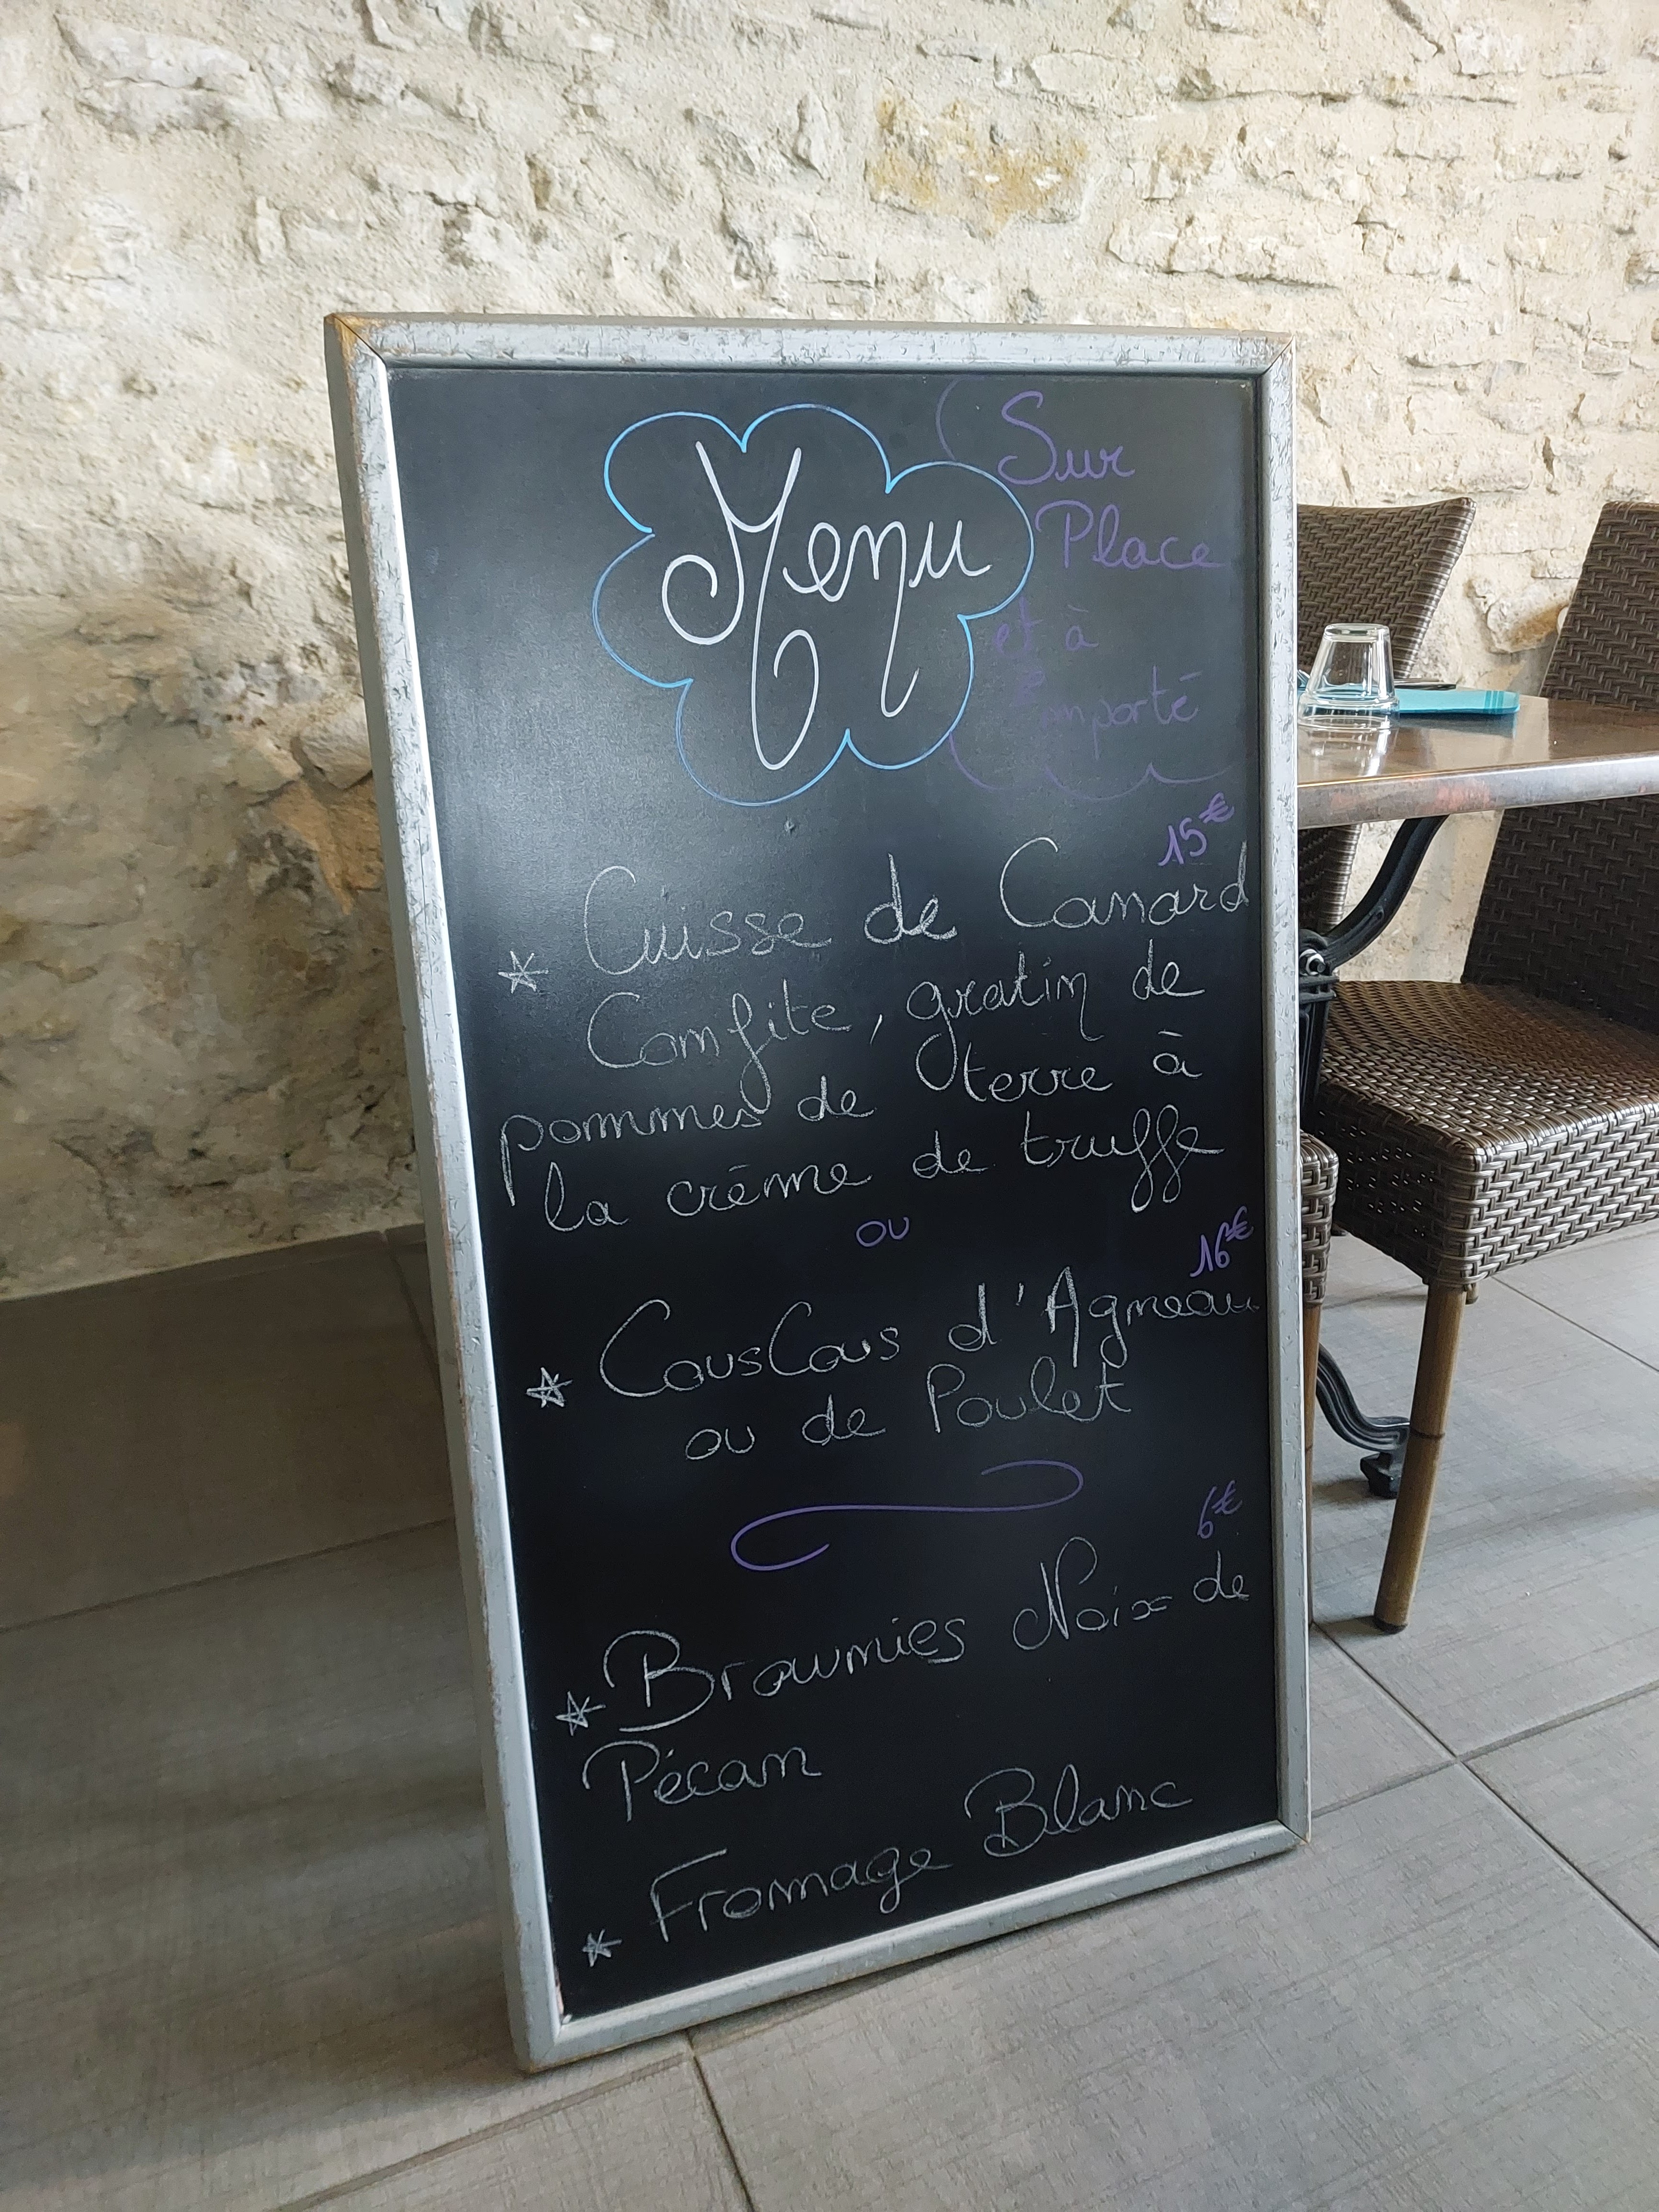 Menu
Sur
Place
et à
emporté
15€
* Cuisse de Canard
Confite, gratin de
pommes de terre à
la crème de truffe
ou
16€
* CousCous d'Agneau
ou de Poulet
6€
* Brownies Noix de
Pécan
* Fromage Blanc